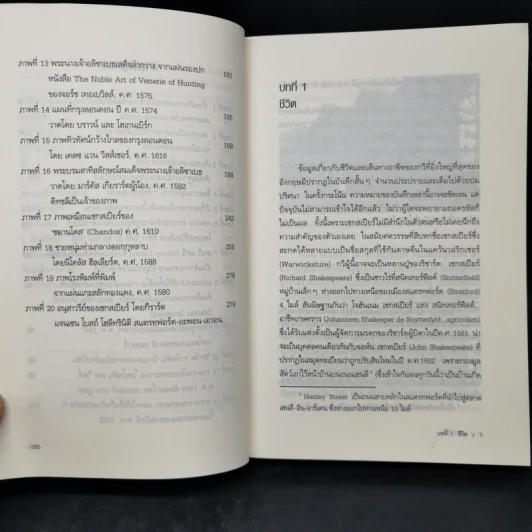 ภาพที่ 13 พระนางเจ้าอลิซาเบธเสด็จล่ากวาง จากแผ่นรองปก 160
หนังสือ The Noble Art of Venerie of Hunting
ของจอร์ช เทอเบวิลล์. ค.ศ. 1575
ภาพที่ 14 แผนที่กรุงลอนดอน ปี ค.ศ. 1574 165
วาดโดย บราวน์ และ โฮเกนเบิร์ก
ภาพที่ 15 ภาพทิวทัศน์กว้างไกลของกรุงลอนดอน 168
โดย เคลซ แวน วิสเชอร์, ค.ศ. 1616
ภาพที่ 16 พระบรมสาทิสลักษณ์สมเด็จพระนางเจ้าอลิซาเบธ 188
วาดโดย มาร์คัส เกียราร์ตผู้น้อง, ค.ศ. 1592
ดิทชลีย์เป็นเจ้าของภาพ
ภาพที่ 17 ภาพเหมือนเชกสเปียร์ของ 242
'ชมานโดส' (Chandos) ค.ศ. 1610
ภาพที่ 18 ชายหนุ่มท่ามกลางดอกกุหลาบ 256
โดยนิโคลัส ฮิลเลียร์ด, ค.ศ. 1588
ภาพที่ 19 ภาพโรงพิมพ์ที่พิมพ์ 276
จากแผ่นแกะสลักทองแดง, ค.ศ. 1580
ภาพที่ 20 อนุสาวรีย์ของเชกสเปียร์ โดยกีราร์ต 279
แจนเซน โบสถ์ โฮลีทรินิตี สแตรทฟอร์ด-อะพอน-เอวอน
บทที่ 1
ชีวิต
ข้อมูลเกี่ยวกับชีวิตและเส้นทางอาชีพของกวีที่ยิ่งใหญ่ที่สุดของ
อังกฤษมีปรากฏในบันทึกสั้นๆ จำนวนประปรายและเต็มไปด้วยปม
ปริศนา ในครั้งกระโน้น ความหมายของบันทึกเหล่านี้อาจชัดเจน แต่
ปัจจุบันไม่สามารถเข้าใจได้อีกแล้ว ไม่ว่าผู้ใดจะพยายามถอดรหัสก็
ไม่เป็นผล ทั้งนี้เพราะเชกสเปียร์ไม่มีสำนึกในตัวตนหรือไม่เคยนึกถึง
ความสำคัญของตัวเองเลย ในสมัยศตวรรษที่สิบหกชื่อเชกสเปียร์ซึ่ง
สะกดได้หลายแบบเป็นชื่อสกุลที่ใช้กันดาษดื่นในแคว้นวอริกเชอร์
(Warwickshire) กวีผู้นี้อาจจะเป็นหลานปู่ของริชาร์ด เชกสเปียร์
(Richard Shakespeare) ซึ่งเป็นชาวไร่ที่สนิตเทอร์ฟีลด์ (Snitterfield)
หมู่บ้านเล็กๆ ห่างออกไปทางเหนือของเมืองสแตรทฟอร์ด (Stratford)
4 ไมล์ สันนิษฐานกันว่า โจฮันเนม เชกสเปียร์ แห่ง สนิทเทอร์ฟีลด์,
อาชีพเกษตรกร (Johannem Shakesper de Snytterfyld... agricolam)
ซึ่งได้รับแต่งตั้งเป็นผู้จัดการมรดกของริชาร์ดผู้บิดาในปีค.ศ. 1561 น่า
จะเป็นบุคคลคนเดียวกันกับจอห์น เชกสเปียร์ (John Shakespeare) ที่
ปรากฏในสมุดทะเบียนว่าถูกปรับสินไหมในปี ค.ศ.1552 เพราะกองมูล
สัตว์เอาไว้หน้าบ้านบนถนนเฮนลี ¹ (ซึ่งเข้าใจกันจนทุกวันนี้ว่าเป็นบ้านเกิด
¹ Henley Street เป็นถนนสายหลักในสแตรทฟอร์ดที่นำไปสู่ตลาด
เฮนลี-อิน-อาร์เดน ซึ่งห่างออกไปทางเหนือ 10 ไมล์
บทที่ 1 - ชีวิต